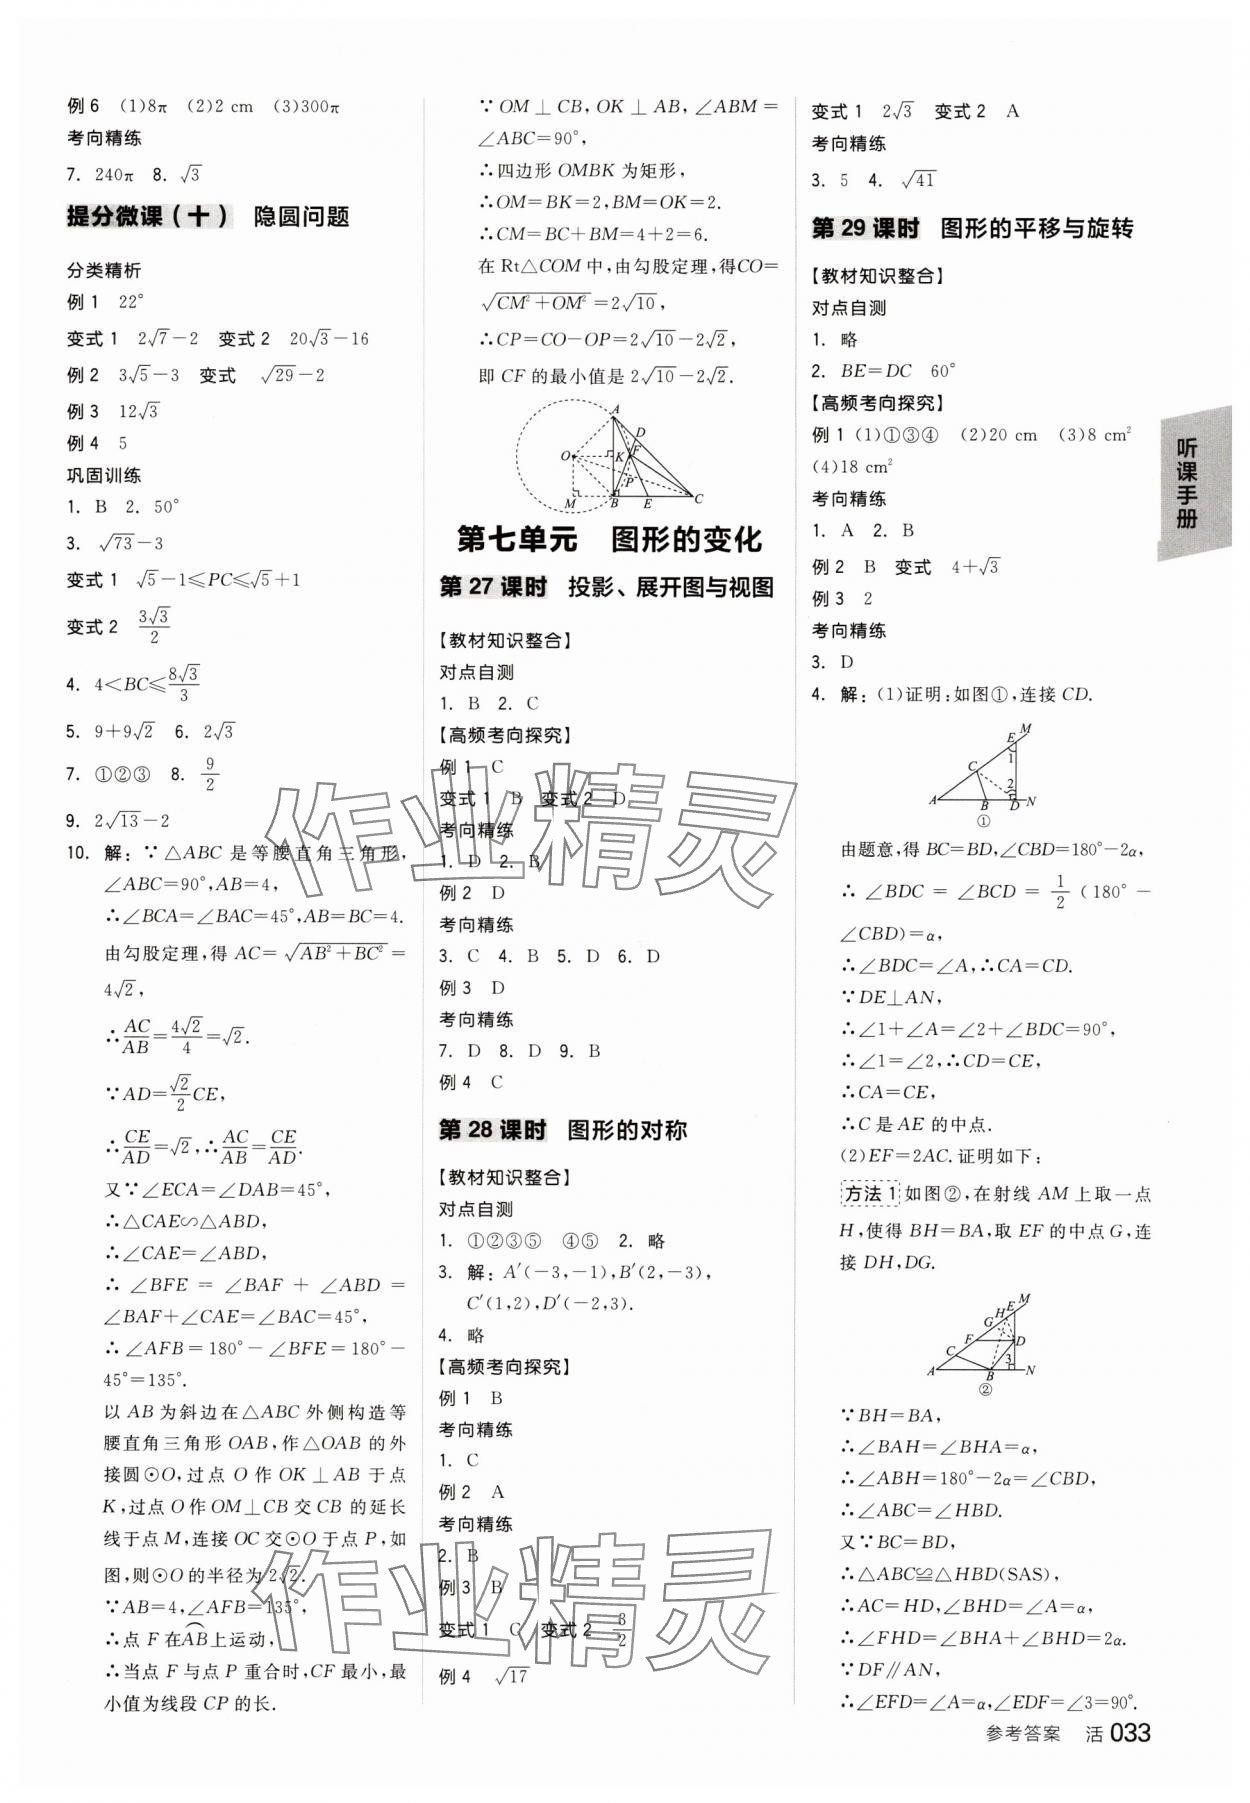 例6 (1)8π (2)2 cm (3)300π
考向精练
7. 240π 8. √3
提分微课(十) 隐圆问题
分类精析
例1 22°
变式1 2√7-2 变式2 20√3-16
例2 3√5-3 变式 √29-2
例3 12√3
例4 5
巩固训练
1. B 2. 50°
3. √73-3
变式1 √5-1≤PC≤√5+1
变式2 3√3/2
4. 4<BC≤8√3/3
5. 9+9√2 6. 2√3
7. ①②③ 8. 9/2
9. 2√13-2
10. 解:∵△ABC是等腰直角三角形,
∠ABC=90°,AB=4,
∴∠BCA=∠BAC=45°,AB=BC=4.
由勾股定理,得AC=√(AB²+BC²)=
4√2,
∴AC/AB=4√2/4=√2.
∵AD=√2/2CE,
∴CE/AD=√2,∴AC/AB=CE/AD.
又∵∠ECA=∠DAB=45°,
∴△CAE∽△ABD,
∴∠CAE=∠ABD,
∴∠BFE=∠BAF+∠ABD=
∠BAF+∠CAE=∠BAC=45°,
∴∠AFB=180°-∠BFE=180°-
45°=135°.
以AB为斜边在△ABC外侧构造等
腰直角三角形OAB,作△OAB的外
接圆⊙O,过点O作OK⊥AB于点
K,过点O作OM⊥CB交CB的延长
线于点M,连接OC交⊙O于点P,如
图,则⊙O的半径为2√2.
∵AB=4,∠AFB=135°,
∴点F在AB⌒上运动,
∴当点F与点P重合时,CF最小,最
小值为线段CP的长.
∵OM⊥CB,OK⊥AB,∠ABM=
∠ABC=90°,
∴四边形OMBK为矩形,
∴OM=BK=2,BM=OK=2.
∴CM=BC+BM=4+2=6.
在Rt△COM中,由勾股定理,得CO=
√(CM²+OM²)=2√10,
∴CP=CO-OP=2√10-2√2,
即CF的最小值是2√10-2√2.
A
D
O
K
F
P
M
B
E
C
第七单元 图形的变化
第27课时 投影、展开图与视图
【教材知识整合】
对点自测
1. B 2. C
【高频考向探究】
例1 C
变式1 B 变式2 D
考向精练
1. D 2. B
例2 D
考向精练
3. C 4. B 5. D 6. D
例3 D
考向精练
7. D 8. D 9. B
例4 C
第28课时 图形的对称
【教材知识整合】
对点自测
1. ①②③⑤ ④⑤ 2. 略
3. 解:A′(-3,-1),B′(2,-3),
C′(1,2),D′(-2,3).
4. 略
【高频考向探究】
例1 B
考向精练
1. C
例2 A
考向精练
2. B
例3 B
变式1 C 变式2 3/2
例4 √17
变式1 2√3 变式2 A
考向精练
3. 5 4. √41
第29课时 图形的平移与旋转
【教材知识整合】
对点自测
1. 略
2. BE=DC 60°
【高频考向探究】
例1 (1)①③④ (2)20 cm (3)8 cm²
(4)18 cm²
考向精练
1. A 2. B
例2 B 变式 4+√3
例3 2
考向精练
3. D
4. 解:(1)证明:如图①,连接CD.
M
E
1
C
2
A
B
D
N
①
由题意,得BC=BD,∠CBD=180°-2α,
∴∠BDC=∠BCD=1/2(180°-
∠CBD)=α,
∴∠BDC=∠A,∴CA=CD.
∵DE⊥AN,
∴∠1+∠A=∠2+∠BDC=90°,
∴∠1=∠2,∴CD=CE,
∴CA=CE,
∴C是AE的中点.
(2)EF=2AC.证明如下:
方法1 如图②,在射线AM上取一点
H,使得BH=BA,取EF的中点G,连
接DH,DG.
M
E
H
G
F
D
C
3
A
B
N
②
∵BH=BA,
∴∠BAH=∠BHA=α,
∴∠ABH=180°-2α=∠CBD,
∴∠ABC=∠HBD.
又∵BC=BD,
∴△ABC≌△HBD(SAS),
∴AC=HD,∠BHD=∠A=α,
∴∠FHD=∠BHA+∠BHD=2α.
∵DF∥AN,
∴∠EFD=∠A=α,∠EDF=∠3=90°.
听课手册
参考答案 活033
作业精灵
作业精灵